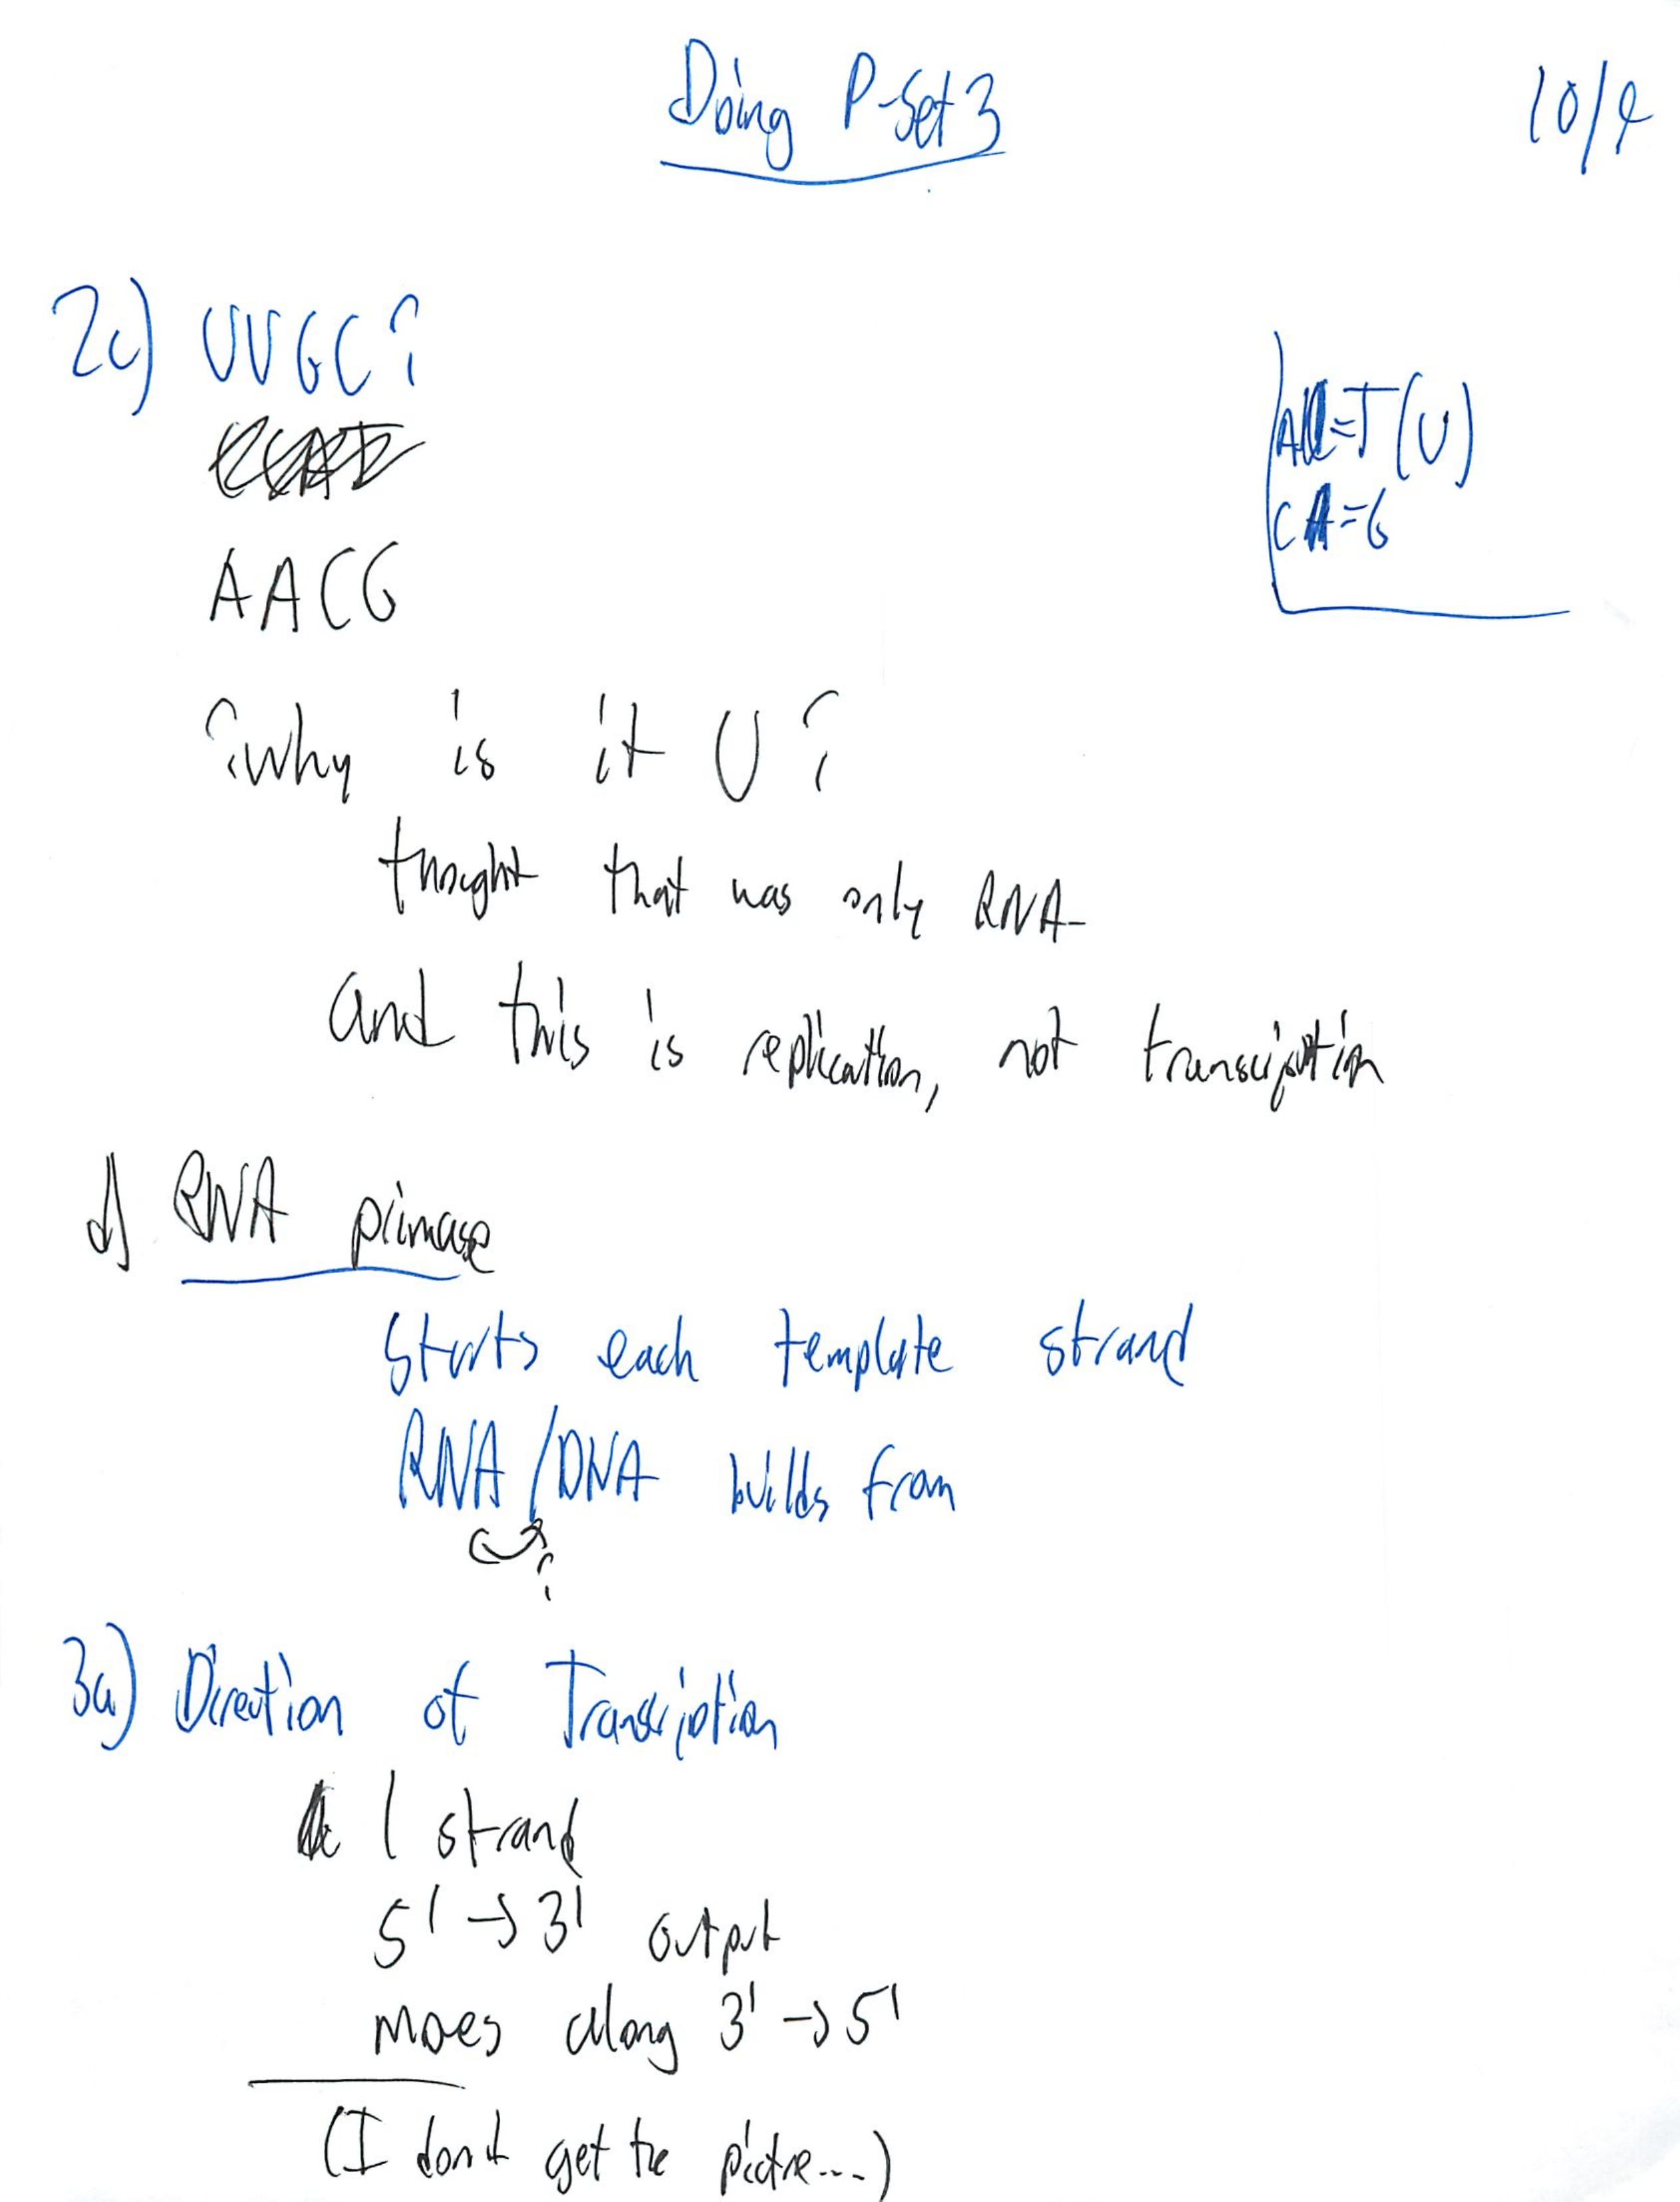 Doing P-Set 3
10/4
2c) UUGC?
A=T(U)
C=G
AACG
?why is it U?
thought that was only RNA-
and this is replication, not transcription
d) RNA primase
Starts each template strand
RNA/DNA builds from
?
3a) Direction of Transcription
1 strand
5' → 3' output
moves along 3' → 5'
(I don't get the picture...)